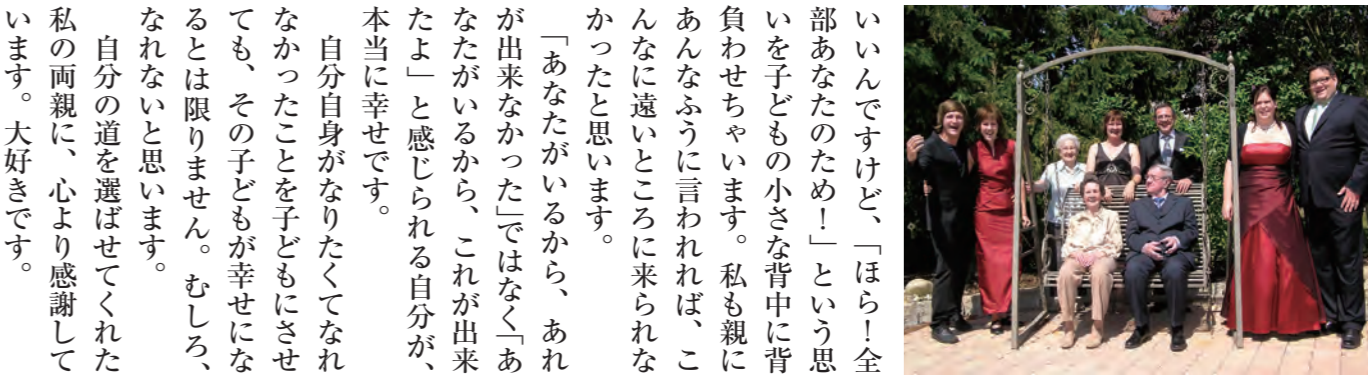 いいんですけど、「ほら！全
部あなたのため！」という思
いを子どもの小さな背中に背
負わせちゃいます。私も親に
あんなふうに言われれば、こ
んなに遠いところに来られな
かったと思います。
「あなたがいるから、あれ
が出来なかった」ではなく「あ
なたがいるから、これが出来
たよ」と感じられる自分が、
本当に幸せです。
自分自身がなりたくてなれ
なかったことを子どもにさせ
ても、その子どもが幸せにな
るとは限りません。むしろ、
なれないと思います。
自分の道を選ばせてくれた
私の両親に、心より感謝して
います。大好きです。